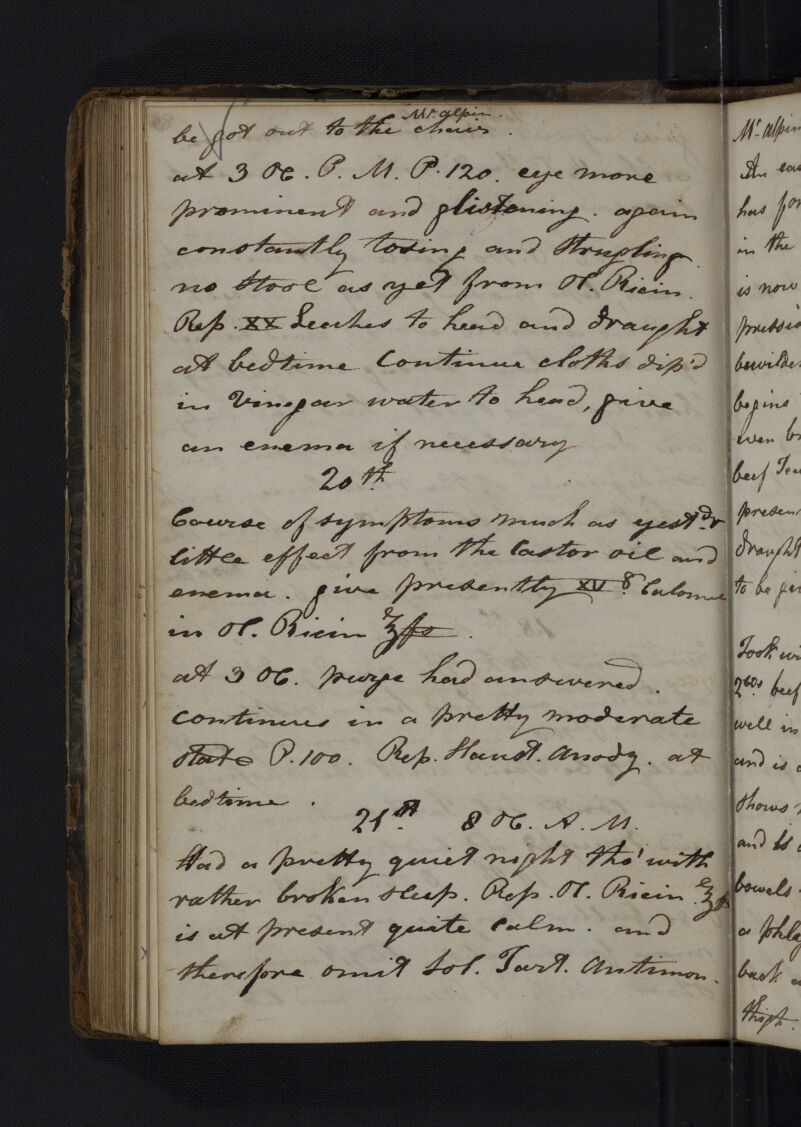 Mr. Alpin.
be got out to the chair.
at 3 OC. P. M. P. 120. eye more
prominent and glistening. again
constantly tosing and strugling.
no stool as yet from Ol. Ricin.
Rep. XX Leeches to head and draught
at bedtime Continue cloths dip'd
in Vinegar water to head, give
an enema if necessary
20th.
Course of symptoms much as yestdy
little effect from the Castor oil and
enema. give presently XV gr Calomel
in Ol. Ricin ℥fs.
at 3 OC. purge had answered.
continues in a pretty moderate
state P. 100. Rep. Haust. Anody. at
bedtime.
21st. 8 OC. A. M.
Had a pretty quiet night tho' with
rather broken sleep. Rep. Ol. Ricin ℥fs
is at present quite calm. and
therefore omit Sol. Tart. Antimon.
Mr. Alpin
An
has for
in the
is now
begins
even
beef Tea
draught
to be
Took
beef
well in
and is
shows
and
bowels
a
back
thigh.